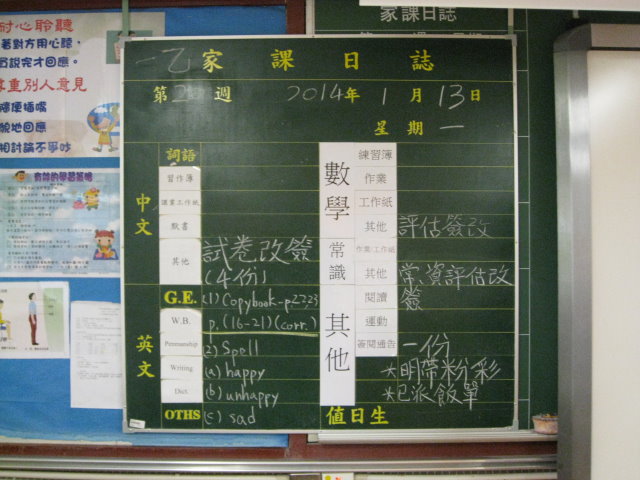 耐心聆聽
家課日誌
着對方用心聽，
尊重別人意見
相討論不爭吵
一乙家課日誌
第 週 2014年 1月 13日
星期一
中文
詞語
習作簿
默書
其他
試卷改簽
(4份)
英文
G.E.
(1) Copybook-p2223
W.B.
p. (16-21)(corr.)
Penmanship
(2) Spell
Writing
(a) happy
Dict.
(b) unhappy
OTHS
(c) sad
數學
練習簿
作業
工作紙
其他
評估簽改
常識
作業/工作紙
其他
常、資評估改
簽
其他
閱讀
運動
簽閱通告
一份
*明帶粉彩
*已派飯單
值日生